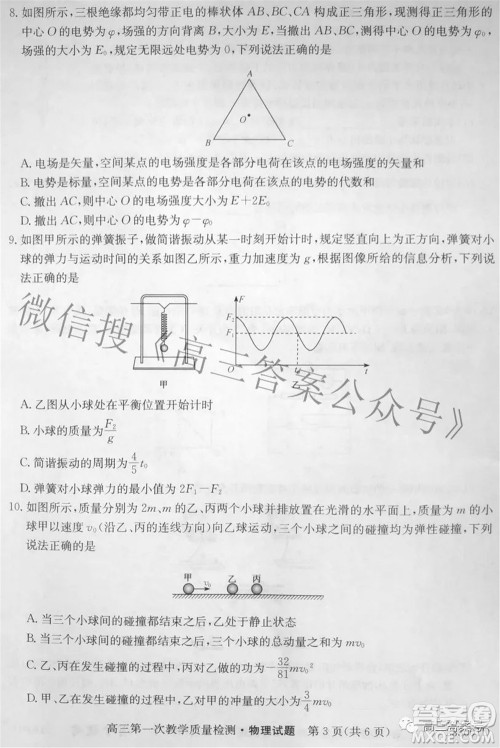 8. 如图所示,三根绝缘都均匀带正电的棒状体 AB、BC、CA 构成正三角形,现测得正三角形的
中心 O 的电势为 φ,场强的方向背离 B,大小为 E,当撤出 AB、BC,测得中心 O 的电势为 φ₀,
场强的大小为 E₀,规定无限远处电势为 0,下列说法正确的是
A
O
B
C
A. 电场是矢量,空间某点的电场强度是各部分电荷在该点的电场强度的矢量和
B. 电势是标量,空间某点的电势是各部分电荷在该点的电势的代数和
C. 撤出 AC,则中心 O 的场强大小为 E+2E₀
D. 撤出 AC,则中心 O 的电势为 φ-φ₀
9. 如图甲所示的弹簧振子,做简谐振动从某一时刻开始计时,规定竖直向上为正方向,弹簧对小
球的弹力与运动时间的关系如图乙所示,重力加速度为 g,根据图像所给的信息分析,下列说
法正确的是
甲
F
F₂
F₁
O
t
乙
A. 乙图从小球处在平衡位置开始计时
B. 小球的质量为 F₂/g
C. 简谐振动的周期为 4/5 t₀
D. 弹簧对小球弹力的最小值为 2F₁-F₂
10. 如图所示,质量分别为 2m、m 的乙、丙两个小球并排放置在光滑的水平面上,质量为 m 的小
球甲以速度 v₀(沿乙、丙的连线方向)向乙球运动,三个小球之间的碰撞均为弹性碰撞,下列
说法正确的是
甲
v₀
乙
丙
A. 当三个小球间的碰撞都结束之后,乙处于静止状态
B. 当三个小球间的碰撞都结束之后,三个小球的总动量之和为 mv₀
C. 乙、丙在发生碰撞的过程中,丙对乙做的功为 -32/81 mv₀²
D. 甲、乙在发生碰撞的过程中,甲对乙的冲量的大小为 3/4 mv₀
高三第一次教学质量检测·物理试题 第 3 页(共 6 页)
微信搜《高三答案公众号》
答案圈